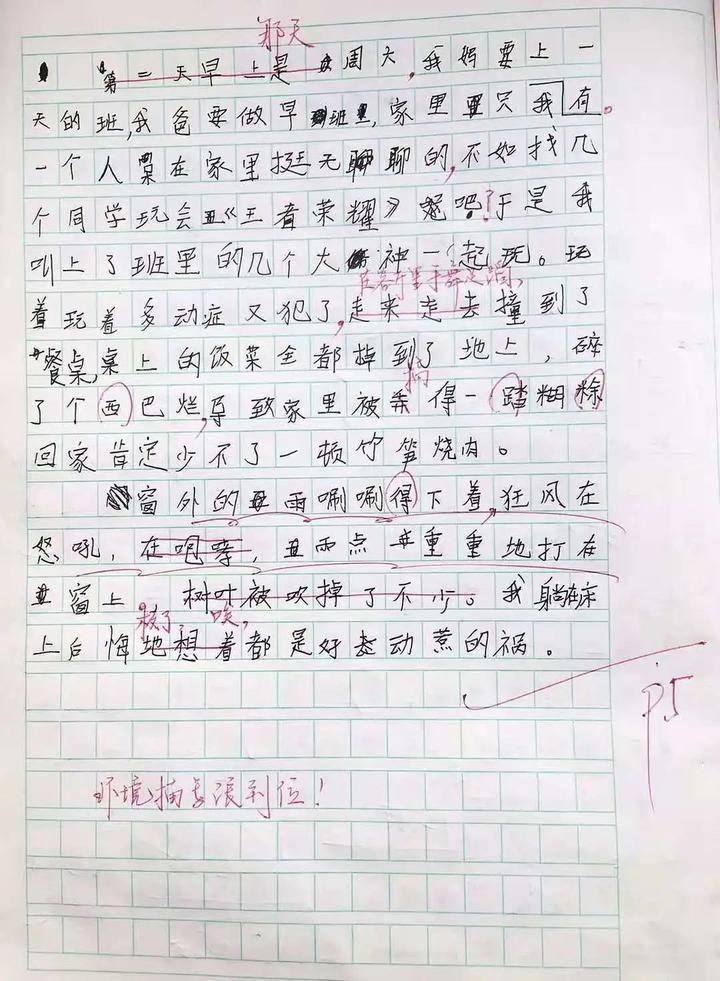 那天
第二天早上是周六,我妈要上一
天的班,我爸要做早班,家里只我有。
一个人在家里挺无聊的,不如找几
个同学玩会《王者荣耀》吧!于是我
叫上了班里的几个大神一起玩。玩
着玩着多动症又犯了,走来走去撞到了
餐桌,桌上的饭菜全都掉到了地上,碎
了个西巴烂,导致家里被弄得一踏糊粽
回家肯定少不了一顿竹笋烧肉。
窗外的雨唰唰得下着,狂风在
怒吼,在咆哮,雨点重重地打在
窗上 树叶被吹掉了不少。我躺在床
完了,唉,
上后悔地想着都是好动惹的祸。
环境描写很到位!